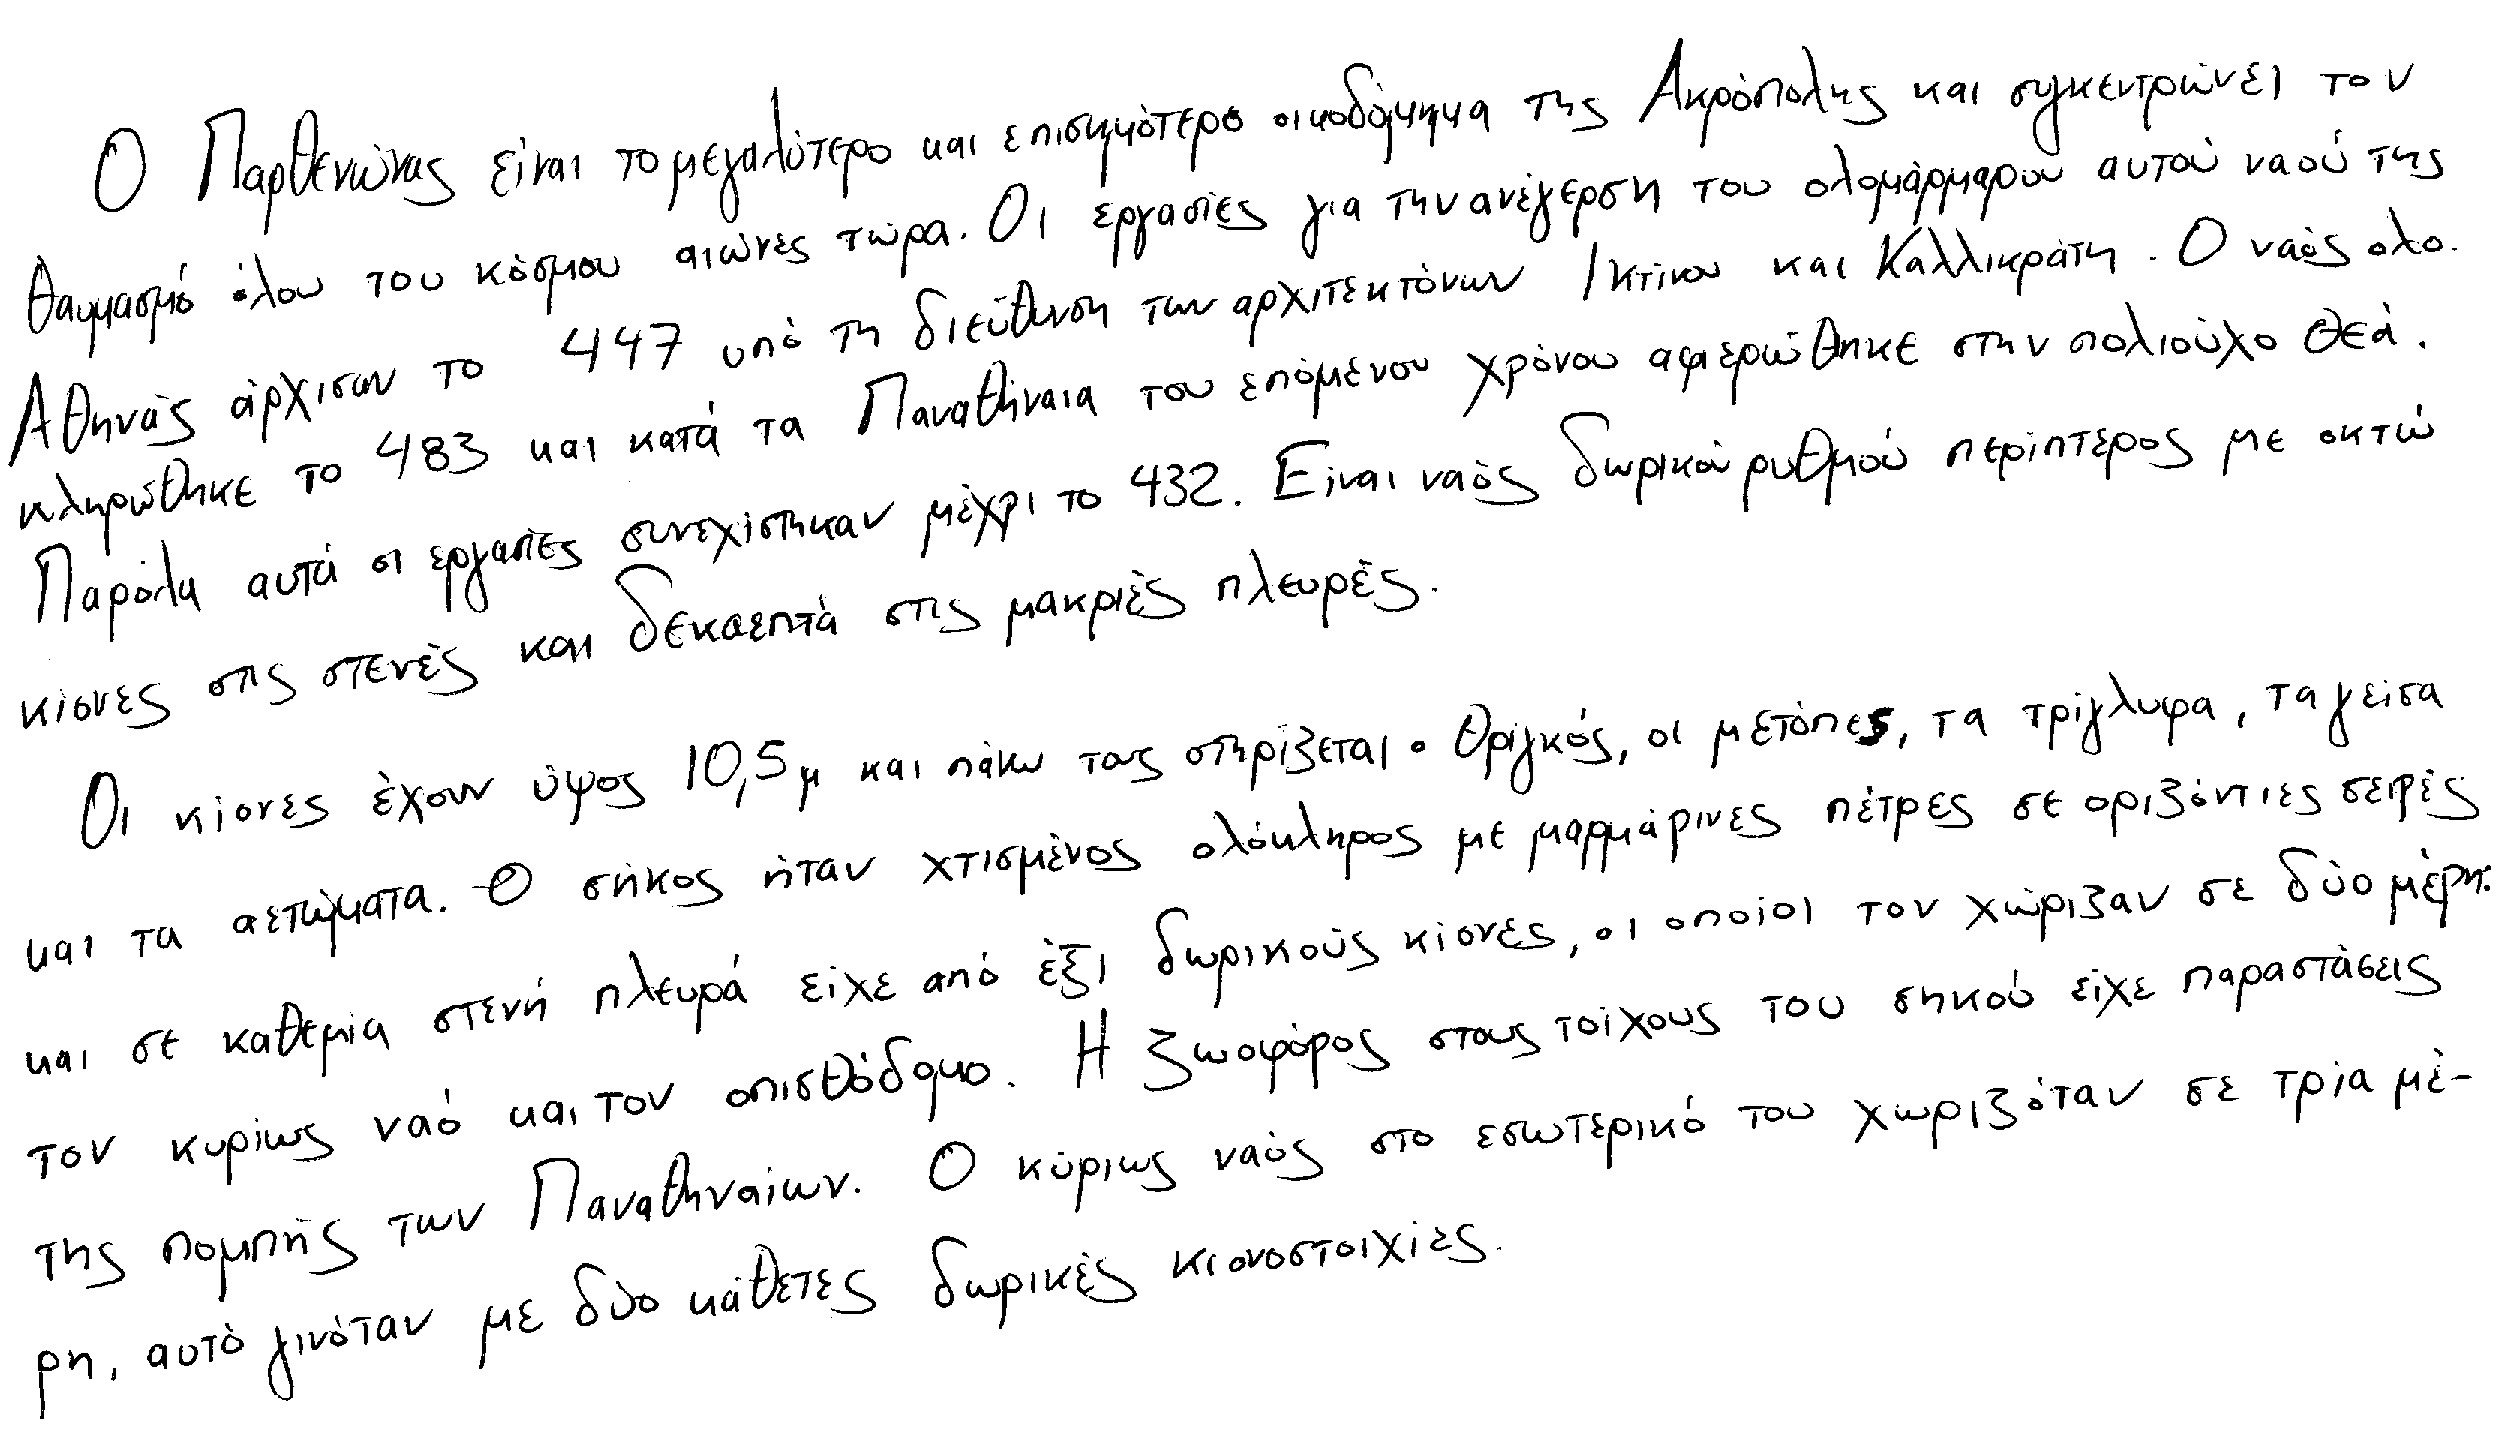 Ο Παρθενώνας είναι το μεγαλύτερο και επισημότερο οικοδόμημα της Ακρόπολης και συγκεντρώνει τον
θαυμασμό όλου του κόσμου αιώνες τώρα. Οι εργασίες για την ανέγερση του ολομάρμαρου αυτού ναού της
Αθηνάς άρχισαν το 447 υπό τη διεύθυνση των αρχιτεκτόνων Ικτίνου και Καλλικράτη. Ο ναός ολο-
κληρώθηκε το 483 και κατά τα Παναθήναια του επόμενου χρόνου αφιερώθηκε στην πολιούχο θεά.
Παρόλα αυτά οι εργασίες συνεχίστηκαν μέχρι το 432. Είναι ναός δωρικού ρυθμού περίπτερος με οκτώ
κίονες στις στενές και δεκαεπτά στις μακριές πλευρές.
Οι κίονες έχουν ύψος 10,5μ και πάνω τους στηρίζεται ο θριγκός, οι μετόπες, τα τρίγλυφα, τα γείσα
και τα αετώματα. Ο σηκος ήταν χτισμένος ολόκληρος με μαρμάρινες πέτρες σε οριζόντιες σειρές
και σε καθεμία στενή πλευρά είχε από έξι δωρικούς κίονες, οι οποίοι τον χώριζαν σε δύο μέρη:
τον κυρίως ναό και τον οπισθόδομο. Η ζωοφόρος στους τοίχους του σηκού είχε παραστάσεις
της πομπής των Παναθηναίων. Ο κύριως ναός στο εσωτερικό του χωριζόταν σε τρία μέ-
ρη, αυτό γινόταν με δύο κάθετες δωρικές κιονοστοιχίες.